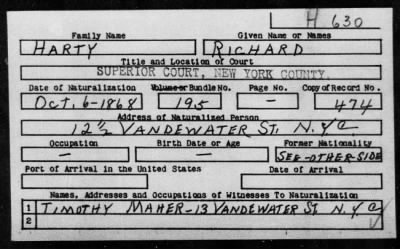 H 630
Family Name Given Name or Names
HARTY RICHARD
Title and Location of Court
SUPERIOR COURT, NEW YORK COUNTY.
Date of Naturalization Volume or Bundle No. Page No. Copy of Record No.
Oct. 6-1868 195 — 474
Address of Naturalized Person
12½ VANDEWATER ST. N.Y.C.
Occupation Birth Date or Age Former Nationality
— — SEE-OTHER-SIDE
Port of Arrival in the United States Date of Arrival
— —
Names, Addresses and Occupations of Witnesses To Naturalization
1 TIMOTHY MAHER-13 VANDEWATER ST. N.Y.C.
2